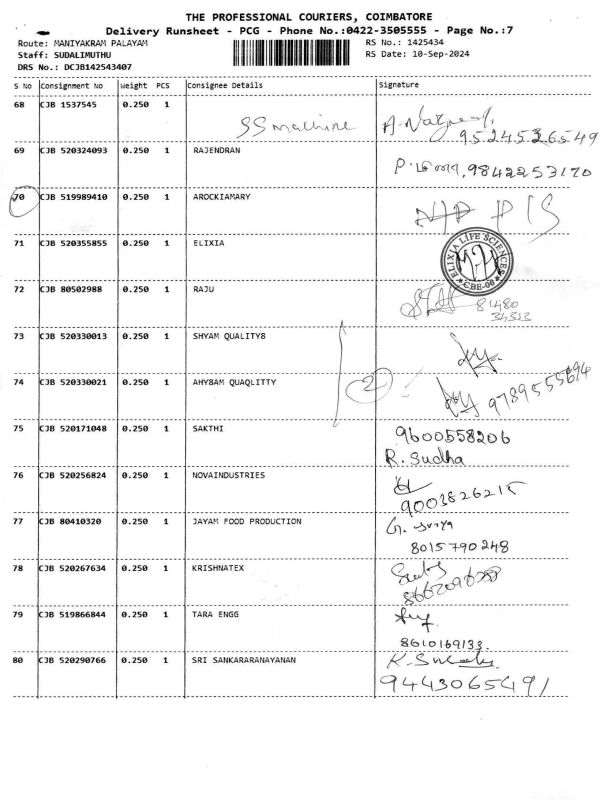 THE PROFESSIONAL COURIERS, COIMBATORE
Delivery Runsheet - PCG - Phone No.:0422-3505555 - Page No.:7
Route: MANIYAKRAM PALAYAM RS No.: 1425434
Staff: SUDALIMUTHU RS Date: 10-Sep-2024
DRS No.: DCJB142543407
S No Consignment No Weight PCS Consignee Details Signature
68 CJB 1537545 0.250 1
SS machine
9524526549
69 CJB 520324093 0.250 1 RAJENDRAN
9842253170
70 CJB 519989410 0.250 1 AROCKIAMARY
71 CJB 520355855 0.250 1 ELIXIA
ELIXIA LIFE SCIENCES
CBE-06
72 CJB 80502988 0.250 1 RAJU
81480
73 CJB 520330013 0.250 1 SHYAM QUALITY8
74 CJB 520330021 0.250 1 AHY8AM QUAQLITTY
2
75 CJB 520171048 0.250 1 SAKTHI 9600558206
R. Sudha
76 CJB 520256824 0.250 1 NOVAINDUSTRIES
9003826215
77 CJB 80410320 0.250 1 JAYAM FOOD PRODUCTION
8015790248
78 CJB 520267634 0.250 1 KRISHNATEX
79 CJB 519866844 0.250 1 TARA ENGG
8610169133
80 CJB 520290766 0.250 1 SRI SANKARARANAYANAN
9443065491